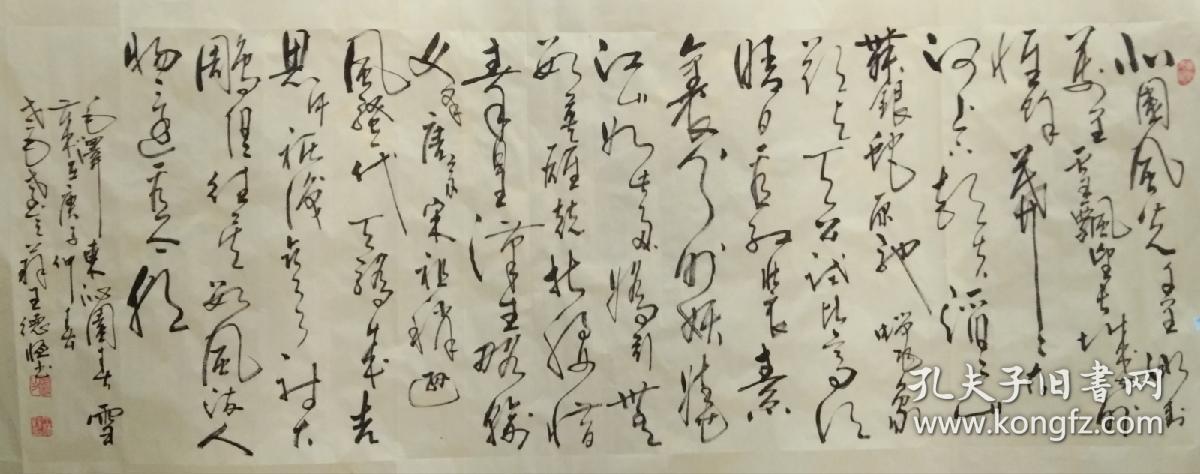 北國風光千里冰封
萬里雪飄望长城内外
惟馀莽莽大
河上下顿失滔滔山
舞銀蛇原驰蜡象
欲与天公试比高须
晴日看红装素
裹分外妖娆
江山如此多嬌引無
数英雄竞折腰惜
秦皇漢武略输
文采唐宗宋祖稍逊
風骚一代天骄成吉
思汗祗識弯弓射大
雕俱往矣数風流人
物还看今朝
毛澤東沁園春雪
庚子仲春
王德
孔夫子旧书网
www.kongfz.com